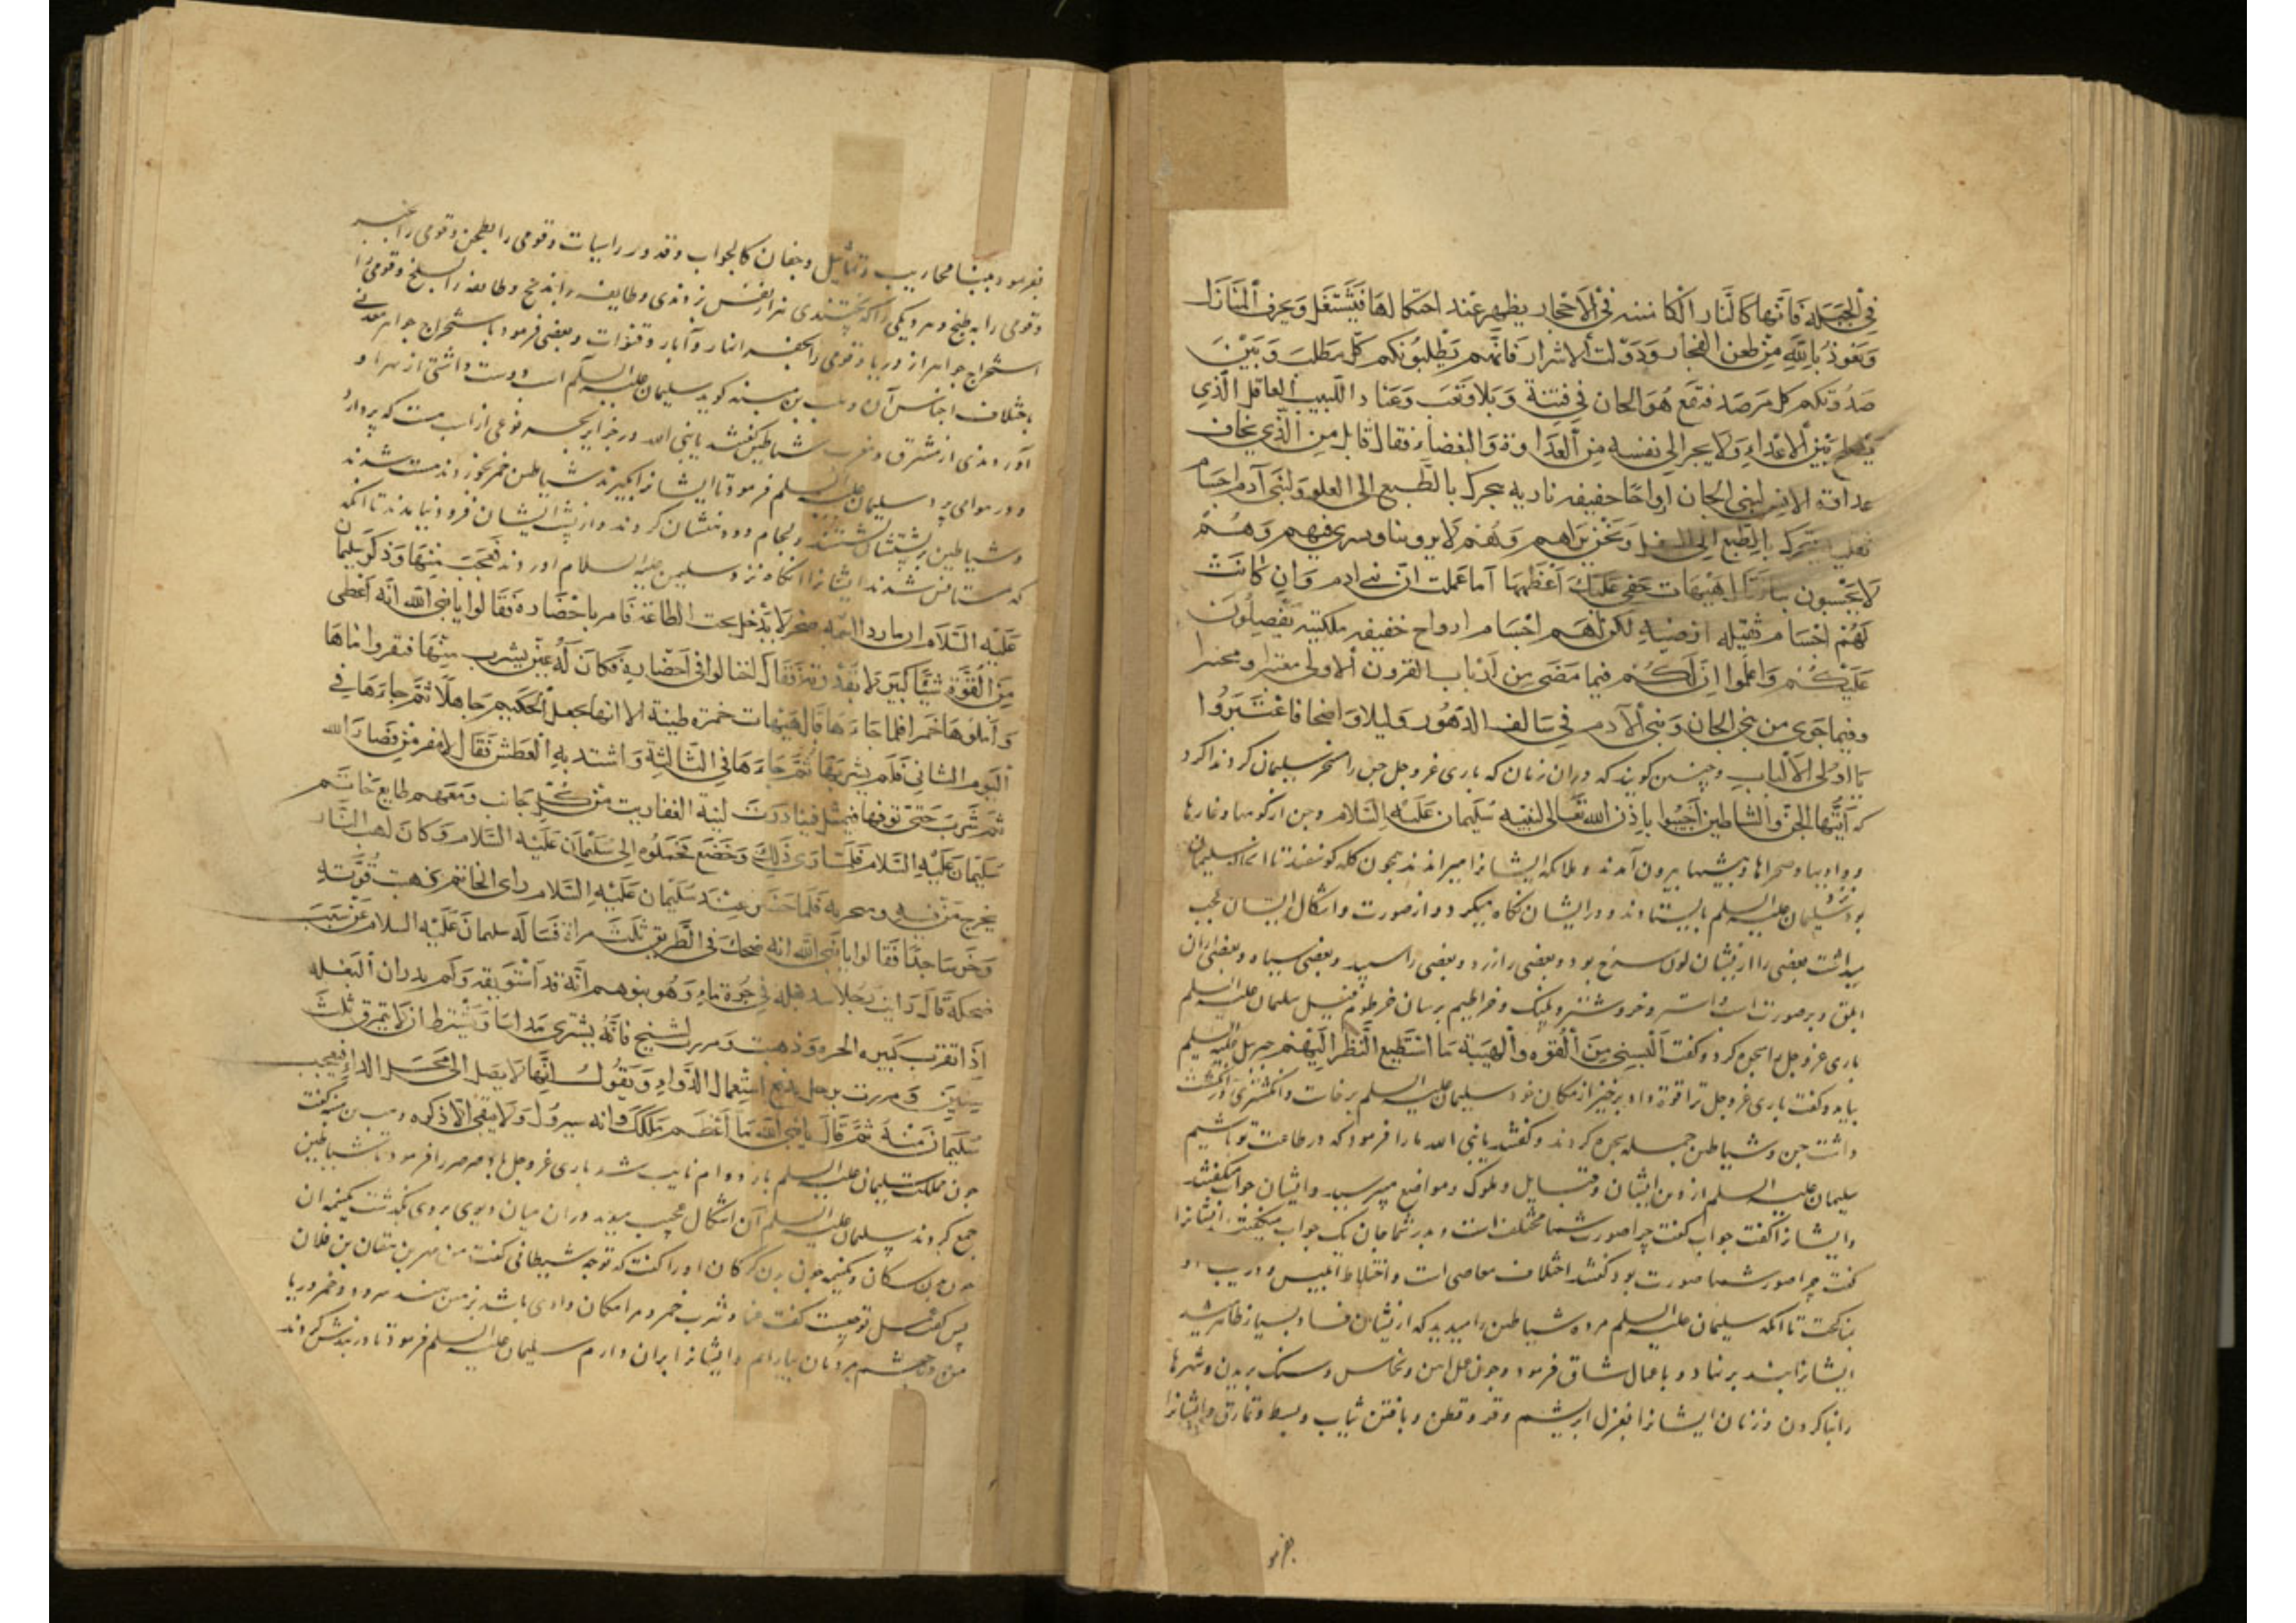 في الجبلة فانها كالنار الكامنة في الاحجار يظهر عند احتكاكها فتشتغل ويحرق المنازل
ونعوذ بالله من طعن الفجار ودولت الاشرار فانهم يطلبونكم كل مطلب وبين
كل مرصد فتقع هو الجان في فتنة وبلا وتعب وعناد اللبيب العاقل الذي
بين الاعداء ولا يجر الى نفسه من العداوة والبغضاء فقال قايل من الذي يخاف
عداوة الانس لبني الجان ارواحا خفيفه ناريه يتحرك بالطبع الى العلو ولبني آدم اجسام
يتحرك بالطبع الى السفل ونحن نراهم وهم لا يروننا ونسري فيهم وهم
لا يحسون بنا هيهات خفي عليك اعظمها اما علمت ان بني ادم وان كانت
لهم اجسام ثقيله ارضيه لكن لهم اجسام ارواح خفيفه ملكيته يفضلون
عليكم واعلموا ان لكم فيما مضى من ارباب القرون الاولى معتبرا ومختبرا
وفيما جرى من بني الجان وبني الآدم في سالف الدهور دليلا واضحا فاعتبروا
يا اولى الالباب وچنين كويند كه دران زمان كه بارى عز وجل جن را مسخر سليمان كردندا كرد
كه ايتها الجن والشاطين اجيبوا باذن الله تعالى لنبيه سليمان عليه السلام وجن از كوهها وغارها
ووادیها وصحراها وبیشها بیرون آمدند وملائکه ایشانرا میراندند همچون کله کوسفند تا
سلیمان علیه السلم بایستادند ودر ایشان نکاه میکرد واز صورت واشکال ایشان عجب
میداشت بعضی را از ایشان لون سرخ بود وبعضی را زرد وبعضی را سپید وبعضی سیاه وبعضی ازان
ابلق وبر صورت اسب واستر وخر وشتر وپلنک وخراطیم بر سان خرطوم فیل سلیمان علیه السلم
باری عز وجل را سجده کرد وکفت البسني من القوه والهيبة ما استطيع النظر اليهم جبریل علیه السلم
بیامد وکفت باری عز وجل ترا قوة داد برخیز از مکان خود سلیمان علیه السلم برخاست وانکشتری در انکشت
داشت جن وشیاطین جمله سجده کردند وکفتند یا نبی الله ما را فرمود که در طاعت تو باشیم
سلیمان علیه السلم از دین ایشان وقبایل وملوک ومواضع میپرسید وایشان جواب میکفتند
وایشانرا کفت جواب کفت چرا صورت شما مختلف است وپدر شما جان یک جواب میکفتند ایشانرا
کفت چرا صور شما صورت بود کفتند اختلاف معاصی است واختلاط ابلیس
مناکحت تا انکه سلیمان علیه السلم مرده شیاطین را میدید که از ایشان فساد بسیار ظاهر شد
ایشانرا بند برنهاد وباعمال شاق فرمود وچون عمل آهن ونحاس وسنک بریدن وشهرها
را بنا کردن وزنان ایشانرا بغزل ابریشم وقز وقطن وبافتن ثیاب وبسط ونمارق وایشانرا
بفرمود
بفرمود ببنا محاریب وتماثیل وجفان کالجواب وقدور راسیات وقومی را بطحن وقومی را بخبز
وقومی را به طبخ ودیکی را که پختندی وطایفه را بذبح وطایفه را بسلخ وقومی را
استخراج جواهر از دریا وقومی را بحفر انهار وآبار وقنوات وبعضی فرمود باستخراج جواهر معدنی
باختلاف اجناس آن وهب بن منبه کوید سلیمان علیه السلم اسب دوست داشتی از بهر او
آوردندی از مشرق ومغرب شیاطین کفتند یا نبی الله در جزایر بحر نوعی از اسب هست که پر دارد
ودر هوا می پرد سلیمان علیه السلم فرمود تا ایشانرا بکیرند شیاطین خمر بخوردند مست شدند
وشیاطین بر پشتشان نشستند ولجام ودهنشان کردند واز پشت ایشان فرود نیامدند تا انکه
که مستانس شدند ایشانرا انکاه نزد سلیمن علیه السلام اوردند فعجب منها وذكو سليمان
عليه السلام ان ماردا اسمه صخر لا يدخل تحت الطاعة فامر باحضاره فقالوا يا نبي الله انه اعطى
من القوة شيئا كبير لا نقدر عليه فقال احتالوا في احضاره فكان له عين يشرب منها فنقروا ماها
واملوها خمرا فلما جاءها قال هيهات خمرة طيبة الا انها يجعل الحكيم جاهلا ثم جاءها في
اليوم الثاني فلم يشربها ثم جاءها في الثالثة واشتد به العطش فقال لا مفر من قضاء الله
ثم شرب حتى نزفها فبادرت ليه العفاريت من كل جانب ومعهم طابع خاتم
سليمان عليه السلام فلما راى ذلك وخضع فحملوه الى سليمان عليه السلام وكان لهب النار
يخرج من فيه ومنخريه فلما حضر عند سليمان عليه السلام راى الخاتم ذهبت قوته
وخر ساجدا فقالوا يا نبي الله انه ضحك في الطريق ثلث مراة فساله سليمان عليه السلام عن سبب
ضحكه قال رايت رجلا في جرة ماء وهو يتوهم انه قد استوثقه ولم يدر ان البغله
اذا تقرب كسر الجره وذهبت ومررت بشيخ فانه يشترى مداسا ويشترط ان لا يتمزق ثلث
سنين ومررت برجل يدع استعمال الدواء ويقول انها لا يصل الى محل الداء فتعجب
سليمان منه ثم قال يا نبي الله ما اعظم ملكك وانه سيزول ولا يبقى الا ذكره وهب بن منبه کفت
چون مملکت سلیمان علیه السلم شد باری عز وجل باد صرصر را فرمود تا شیاطین
جمع کردند سلیمان علیه السلم آن اشکال عجب بدید دران میان دیوی بروی بکذشت یکنیمه ان
چون سکان ویکنیمه چون کرکان اورا کفت که تو چه شیطانی کفت من مهر بن هفان بن فلان
پس کفت عمل تو چیست کفت غنا وشرب خمر
مردمان بیارام وایشانرا بران دارم سلیمان علیه السلم فرمود تا در بندش کردند